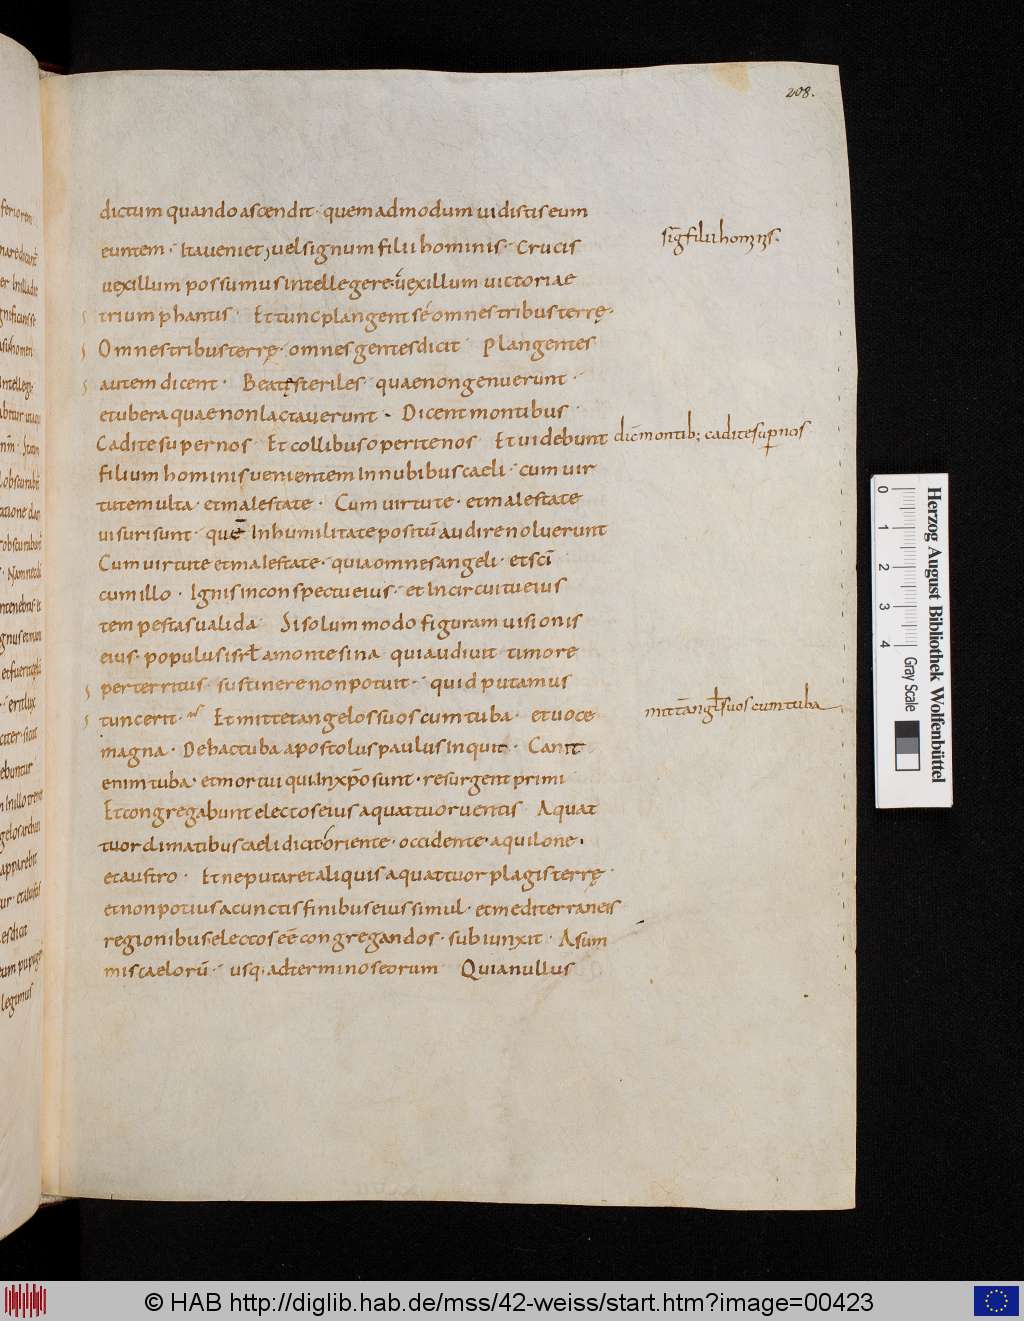 208.
dictum quando ascendit· quemadmodum uidistis eum
euntem· Ita ueniet; uel signum filii hominis· Crucis
uexillum possumus intellegere· uexillum uictoriae
triumphantis· Et tunc plangent sé omnes tribus terrę·
Omnes tribus terrę· omnes gentes dicit Plangentes
autem dicent· Beatę steriles quae non genuerunt·
et ubera quae non lactauerunt· Dicent montibus
Cadite super nos Et collibus operite nos Et uidebunt
filium hominis uenientem In nubibus caeli· cum uir
tute multa· et maiestate· Cum uirtute· et maiestate
uisuri sunt· quē In humilitate positū audire noluerunt
Cum uirtute et maiestate· quia omnes angeli· et scī
cum illo· Ignis in conspectu eius· et In circuitu eius
tempestas ualida Si solummodo figuram uisionis
eius· populus isrl̄ a monte sina qui audiuit timore
perterritus· sustinere non potuit· quid putamus
tunc erit· Et mittet angelos suos cum tuba· et uoce
magna· De hac tuba apostolus paulus inquit· Canit
enim tuba· et mortui qui In xp̄o sunt· resurgent primi
Et congregabunt electos eius a quattuor uentis A quat
tuor climatibus caeli dicit oriente· occidente· aquilone·
et austro· Et ne putaret aliquis a quattuor plagis terrę·
et non potius a cunctis finibus eius simul· et mediterraneis
regionibus electos eē congregandos· subiunxit· A sum
mis caelorū· usq; ad terminos eorum Quia nullus
dic̄ montib; cadite sup nos
Herzog August Bibliothek Wolfenbüttel
Gray Scale
0
1
2
3
4
© HAB http://diglib.hab.de/mss/42-weiss/start.htm?image=00423